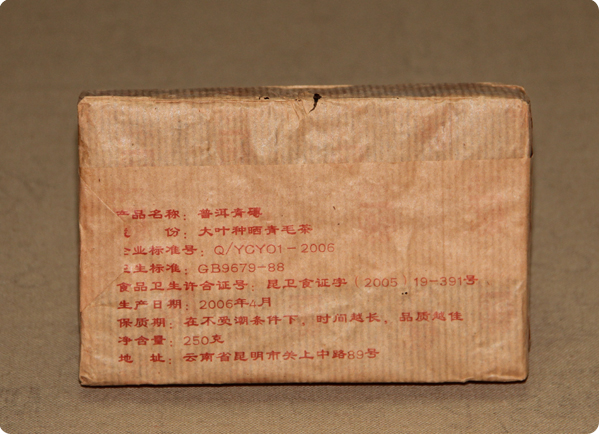 产品名称：普洱青砖
份：大叶种晒青毛茶
企业标准号：Q/YCY01-2006
卫生标准：GB9679-88
食品卫生许合证号：昆卫食证字（2005）19-391号
生产日期：2006年4月
保质期：在不受潮条件下，时间越长，品质越佳
净含量：250克
地 址：云南省昆明市关上中路89号